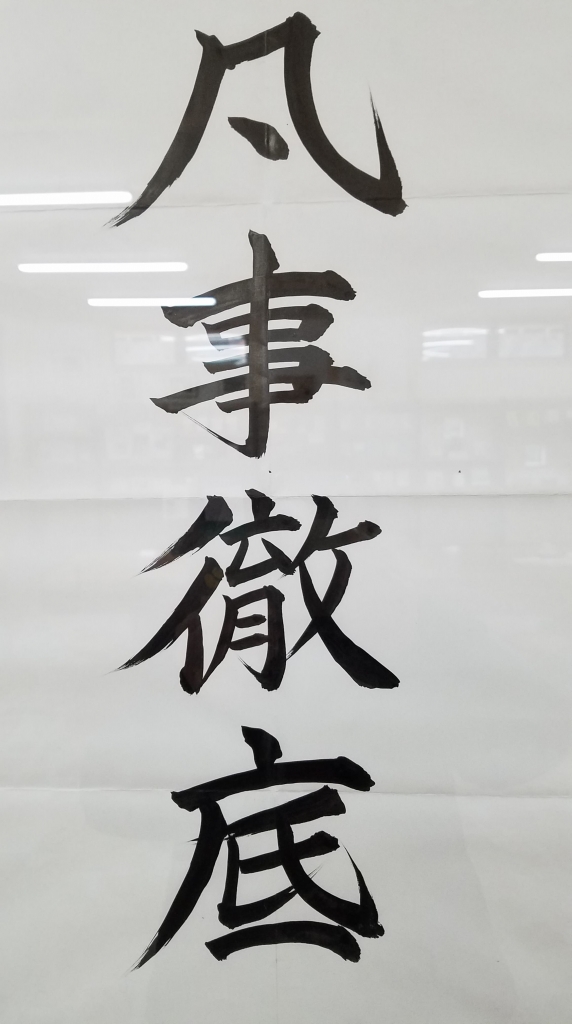 凡事徹底